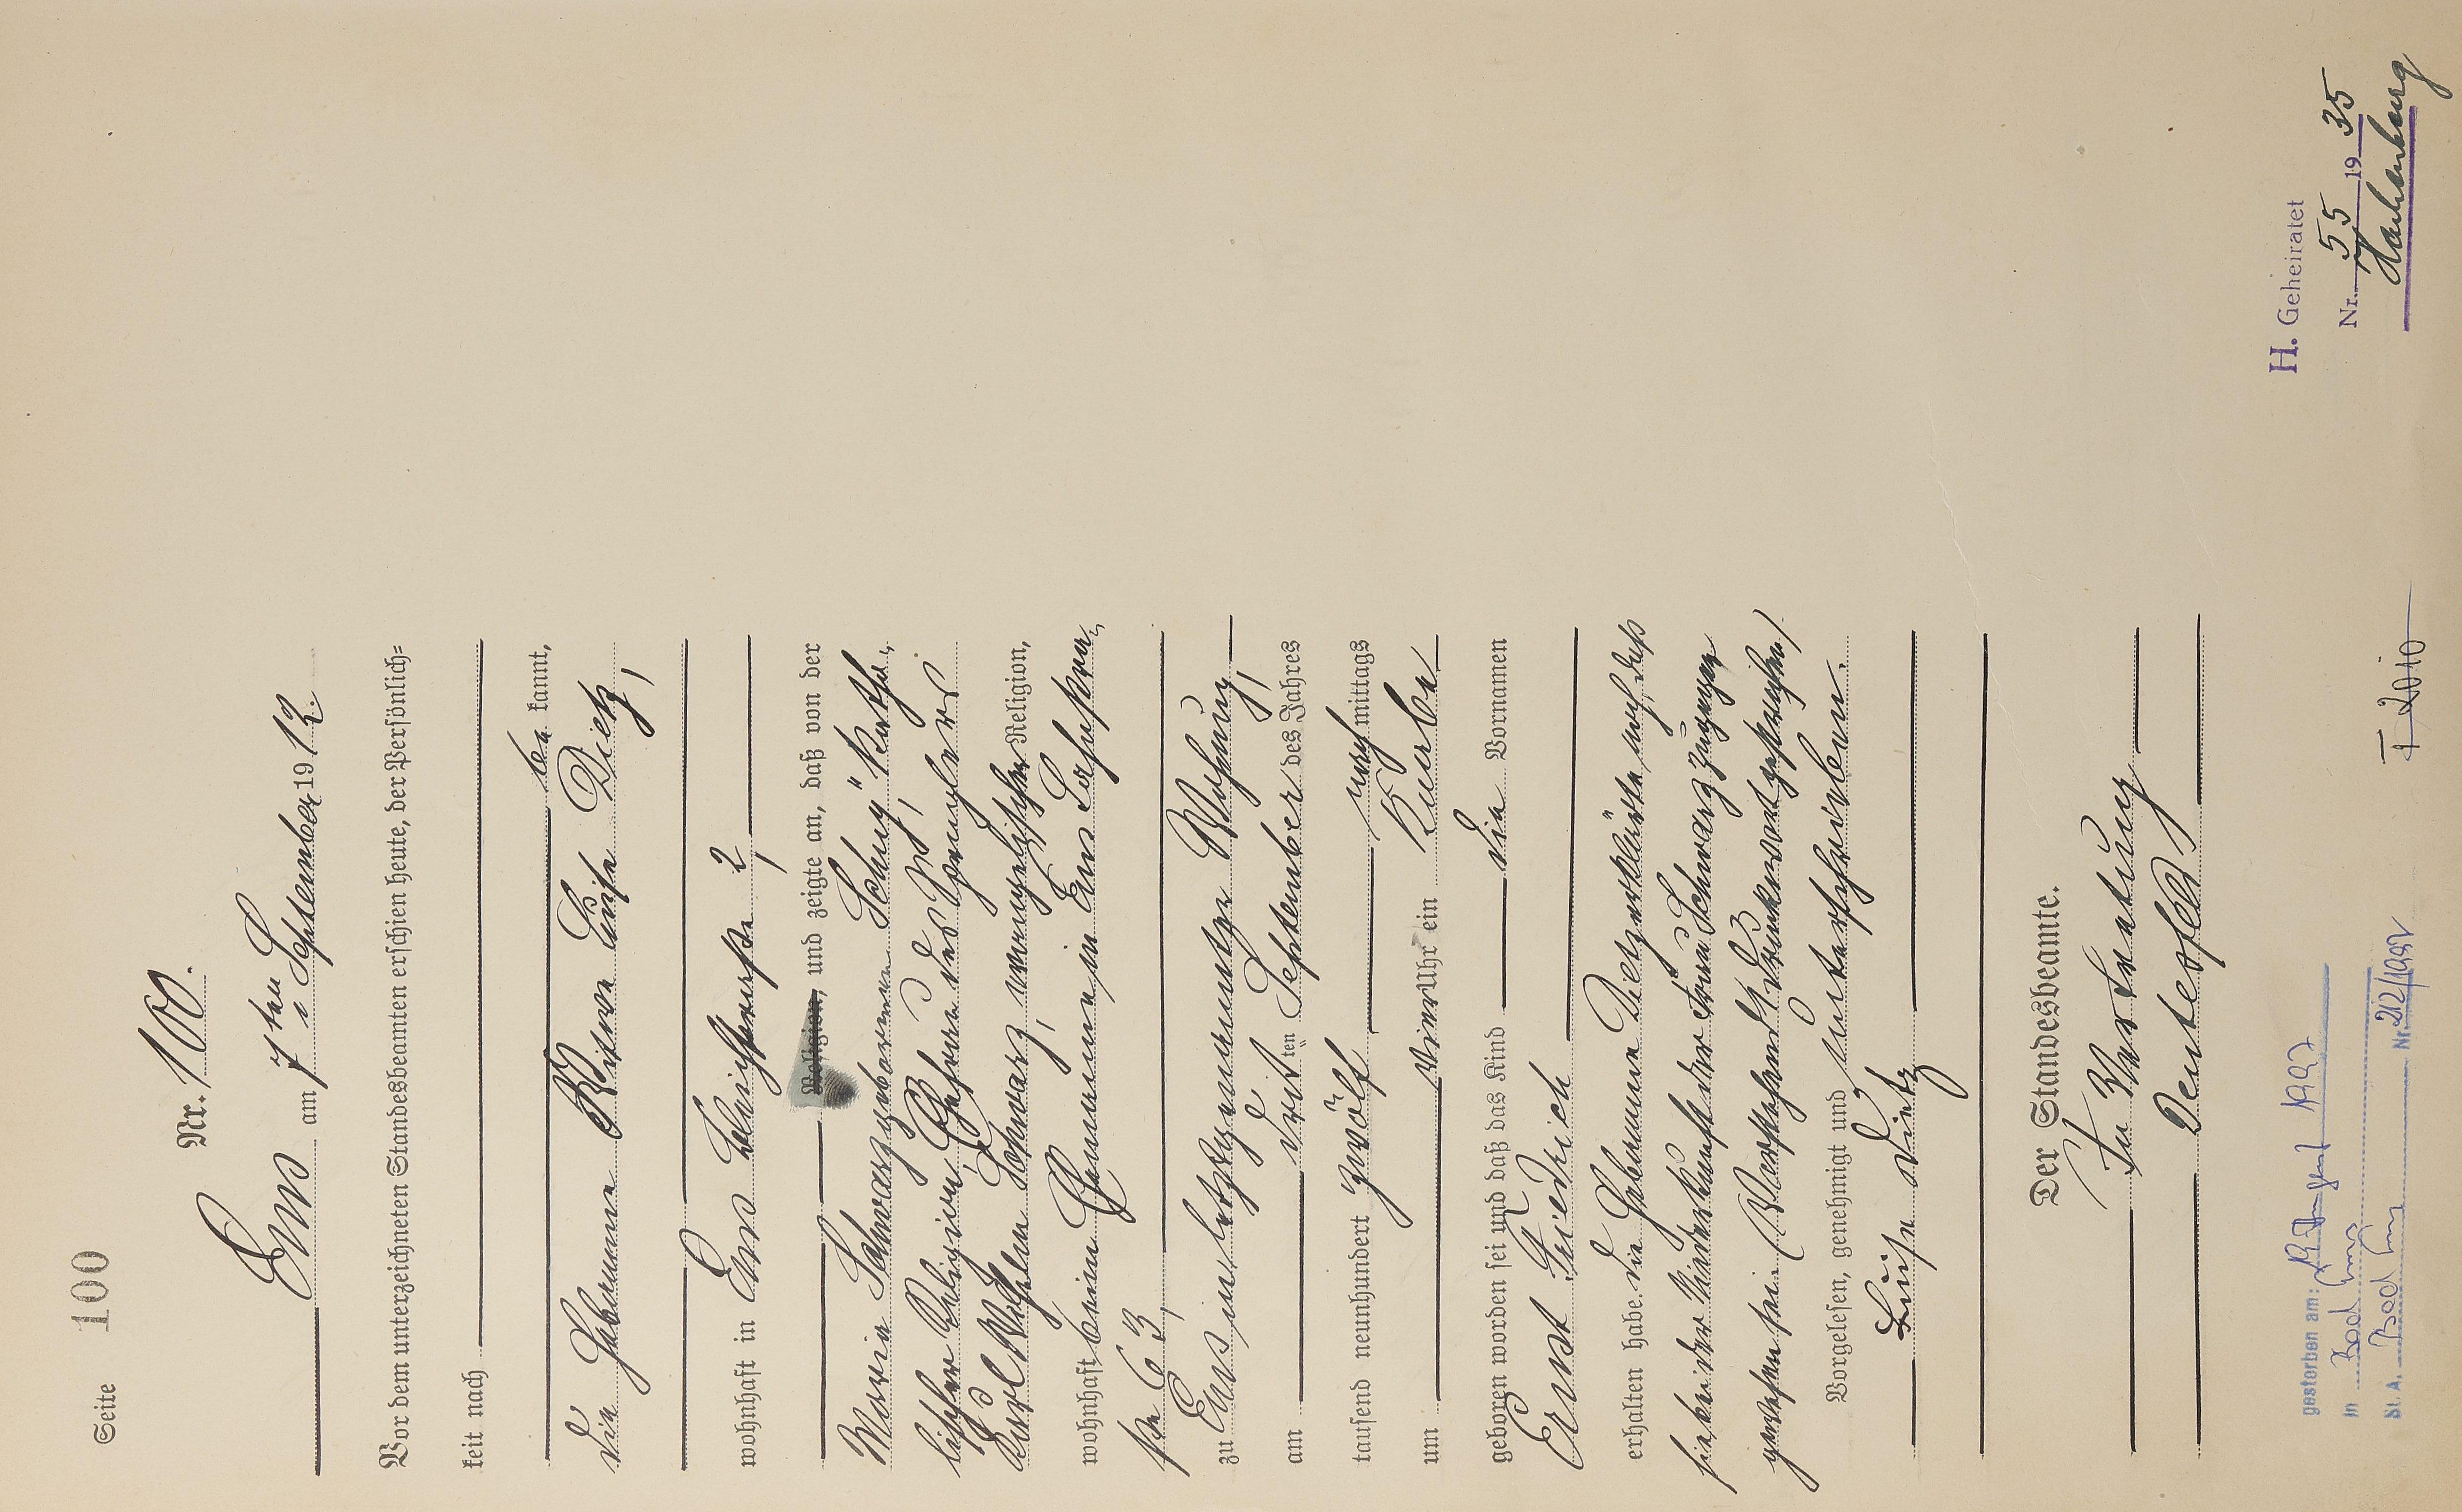 Seite 100
Nr. 100.
Ems am 7ten September 1912
Vor dem unterzeichneten Standesbeamten erschien heute, der Persönlich=
keit nach
be kannt,
die Hebamme Witwe Luise Dietz,
wohnhaft in Ems 2,
Religion, und zeigte an, daß von der
Maria Schwarz geborenen Schug, katho=
lischer Religion, Ehefrau des Spenglers
Karl Wilhelm Schwarz, evangelischer Religion,
wohnhaft beim Ehemanne in Ems
63,
zu Ems in letztgenannter Wohnung,
am dritten September des Jahres
tausend neunhundert zwölf nach mittags
um vier Uhr ein Knabe
geboren worden sei und daß das Kind die Vornamen
Ernst Friedrich
erhalten habe. Die Hebamme Dietz erklärte noch daß
sie bei der Niederkunft der Frau Schwarz zugegen
gewesen sei. (Vorstehend Druckwort gestrichen)
Vorgelesen, genehmigt und unterschrieben.
Luise Dietz
Der Standesbeamte.
In Vertretung
H. Geheiratet
Nr. 55 1935
gestorben am: 1992
in Bad Ems
St. A. Bad Ems Nr. 212/1992